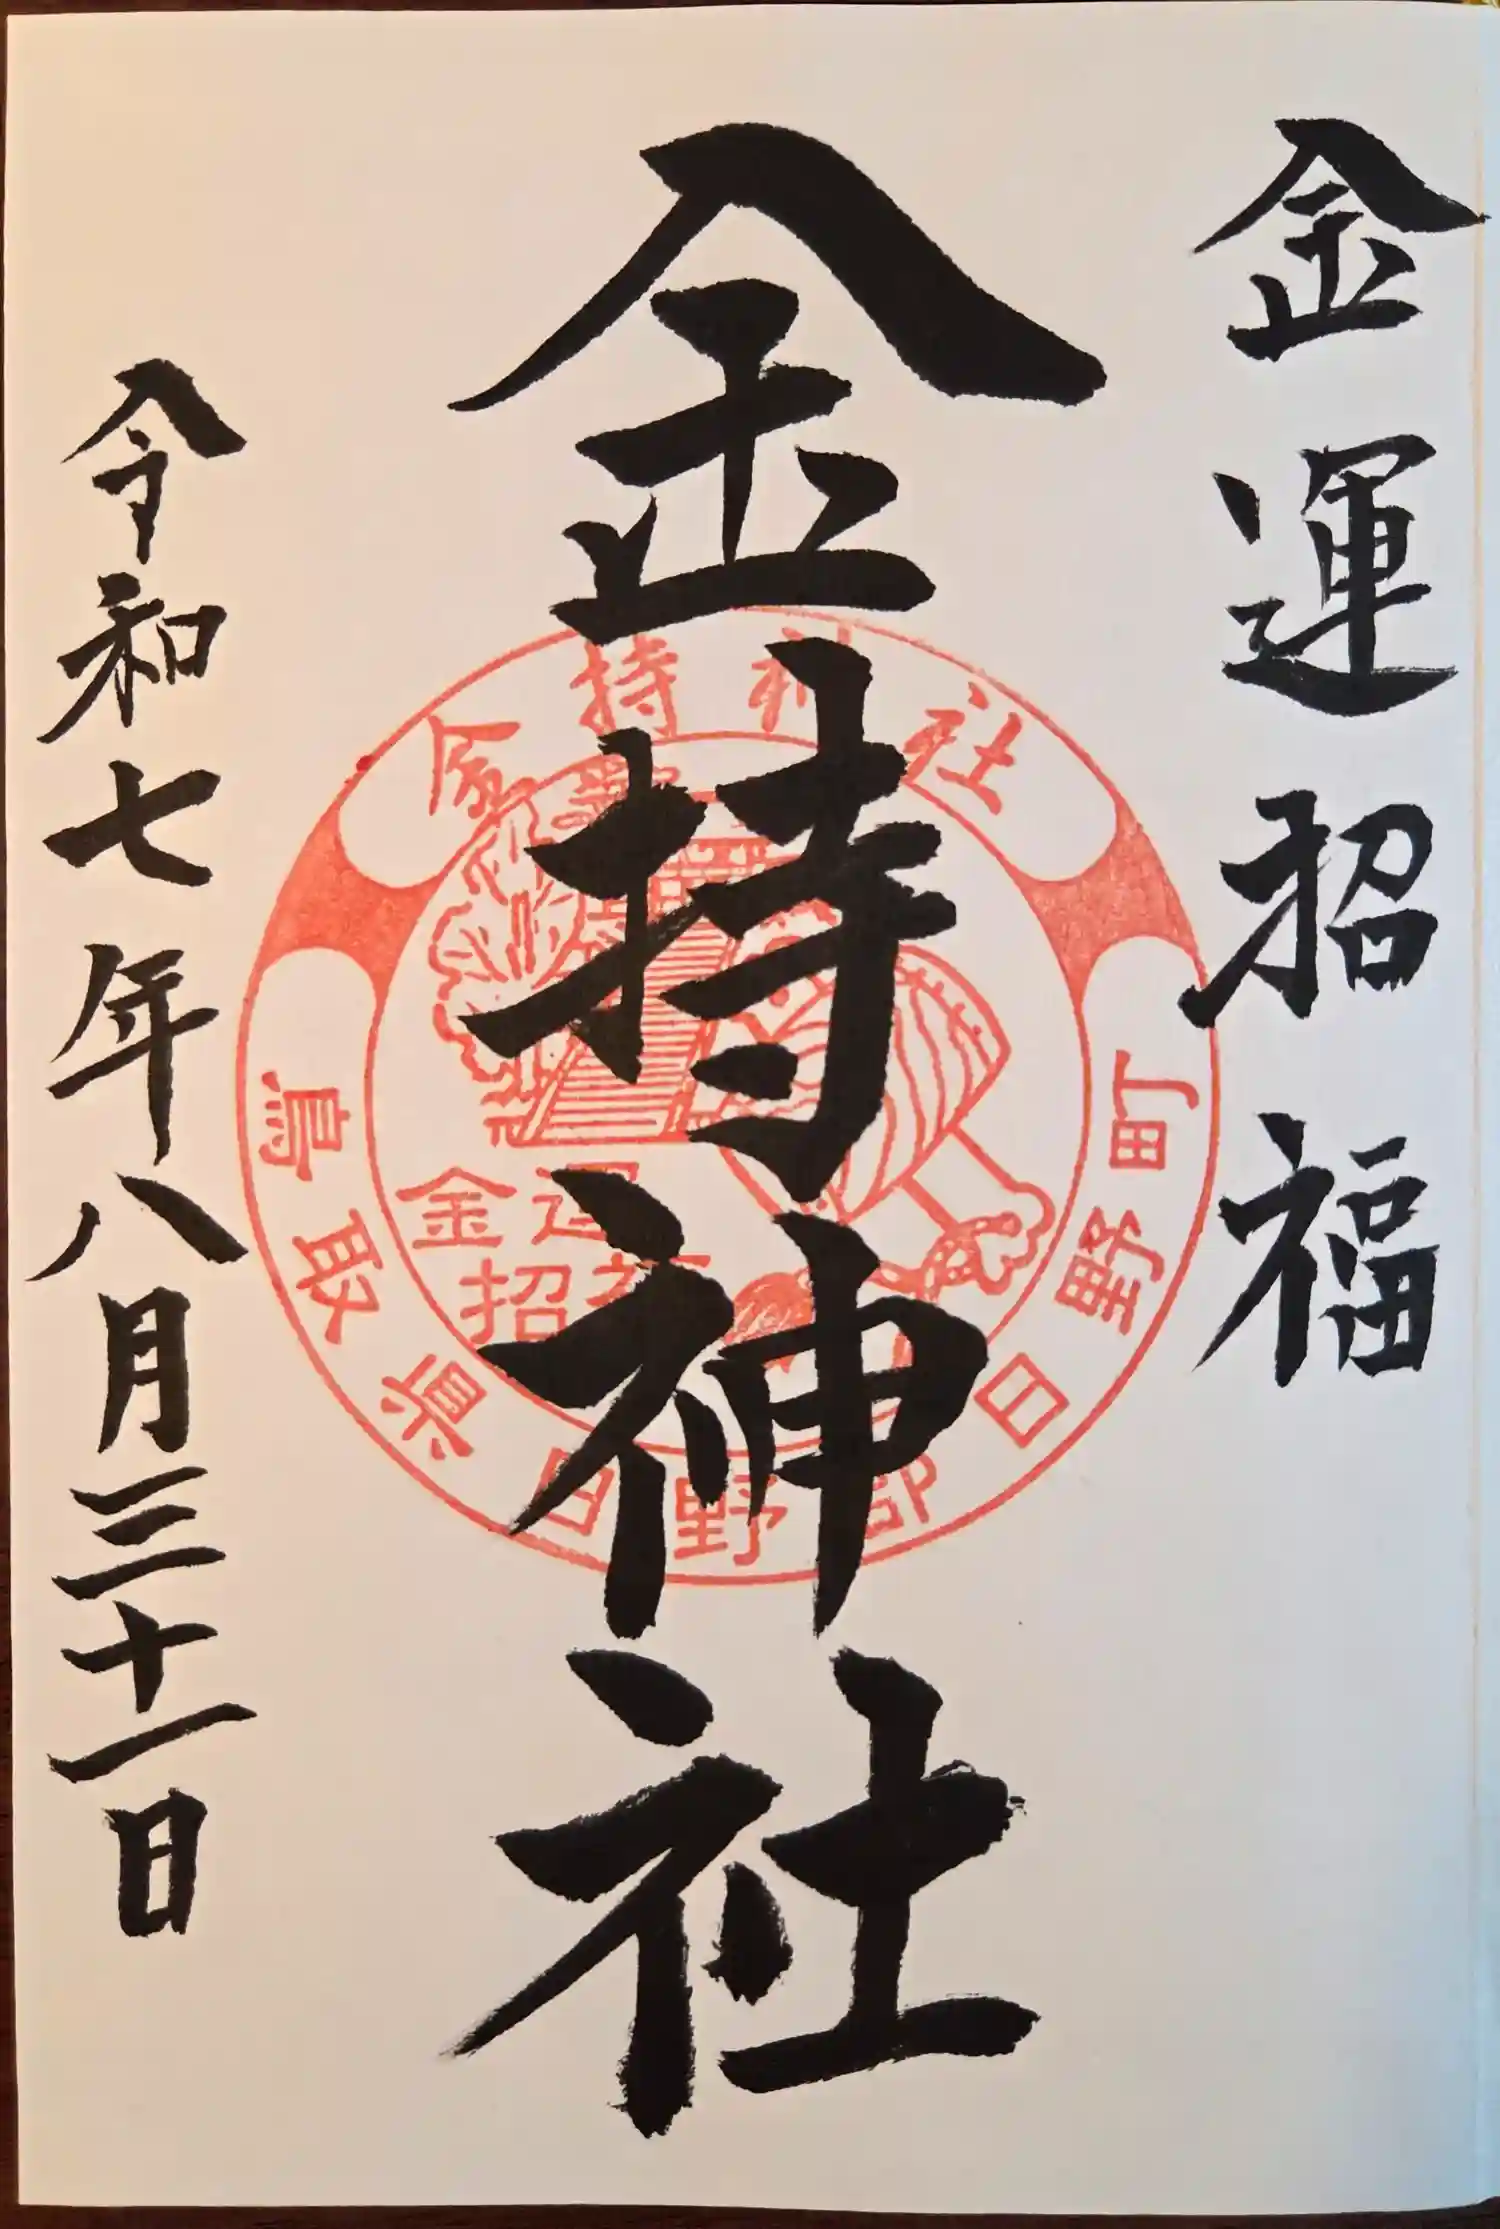 金運招福
金持神社
令和七年八月三十一日
金持神社
鳥取県日野郡日野町
金運
招福